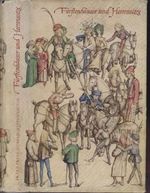 Fürstenhäuser und Herrensitze
Fürstenhäuser und Herrensitze